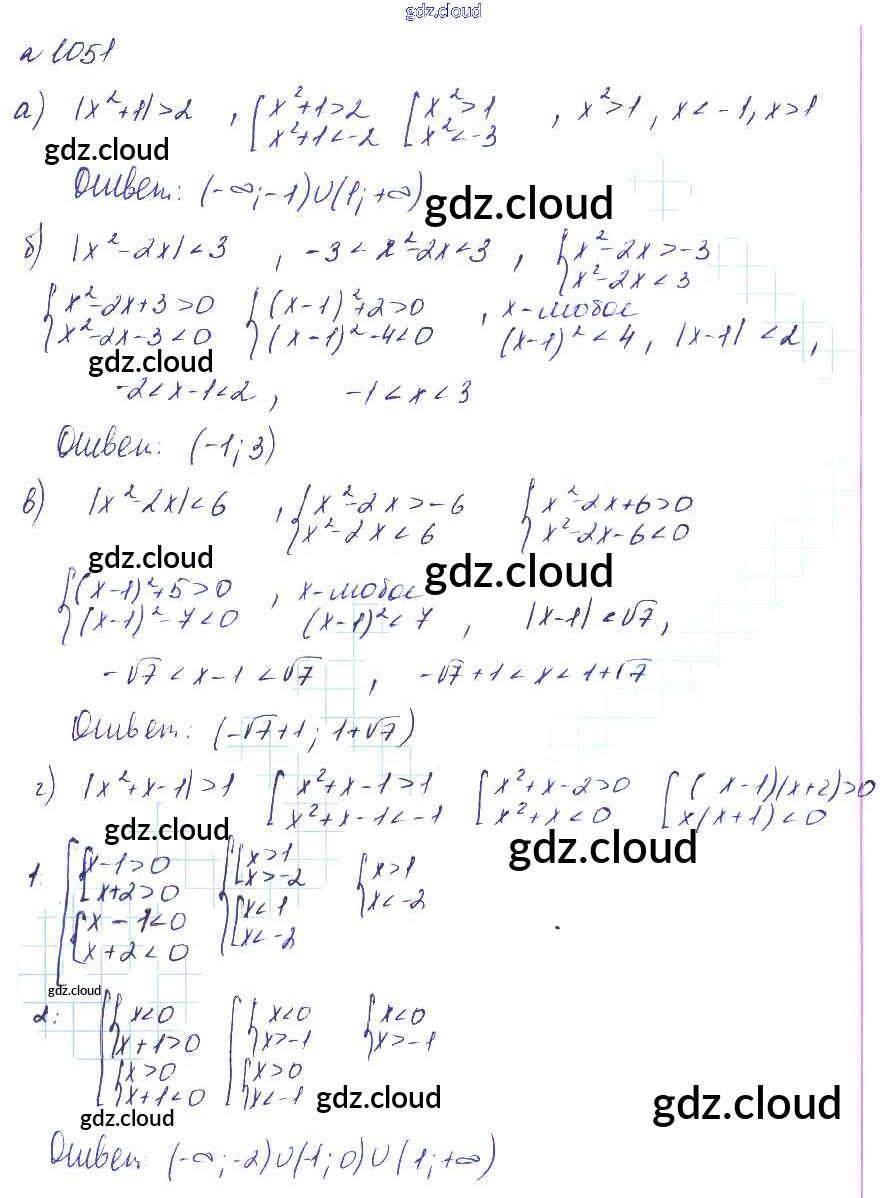 gdz.cloud
№ 1051
а) |x²+1|>2 , [x²+1>2 [x²>1 , x²>1, x<-1, x>1
x²+1<-2 x²<-3
gdz.cloud
Ответ: (-∞;-1)∪(1;+∞)
gdz.cloud
б) |x²-2x|<3 , -3<x²-2x<3 , {x²-2x>-3
x²-2x<3
{x²-2x+3>0 {(x-1)²+2>0 , x-любое
x²-2x-3<0 (x-1)²-4<0 (x-1)²<4, |x-1|<2,
gdz.cloud
-2<x-1<2, -1<x<3
Ответ: (-1;3)
в) |x²-2x|<6 , {x²-2x>-6 {x²-2x+6>0
x²-2x<6 x²-2x-6<0
gdz.cloud
gdz.cloud
{(x-1)²+5>0 , x-любое
(x-1)²-7<0 (x-1)²<7 , |x-1|<√7,
-√7<x-1<√7 , -√7+1<x<1+√7
Ответ: (-√7+1; 1+√7)
г) |x²+x-1|>1 [x²+x-1>1 [x²+x-2>0 [(x-1)(x+2)>0
x²+x-1<-1 x²+x<0 x(x+1)<0
gdz.cloud
gdz.cloud
1. [{x-1>0 {[x>1 {x>1
x+2>0 x>-2 x<-2
{x-1<0 [x<1
x+2<0 x<-2
gdz.cloud
2: [{x<0 [{x<0 {x<0
x+1>0 x>-1 x>-1
{x>0 {x>0
x+1<0 x<-1
gdz.cloud
gdz.cloud
gdz.cloud
Ответ: (-∞;-2)∪(-1;0)∪(1;+∞)